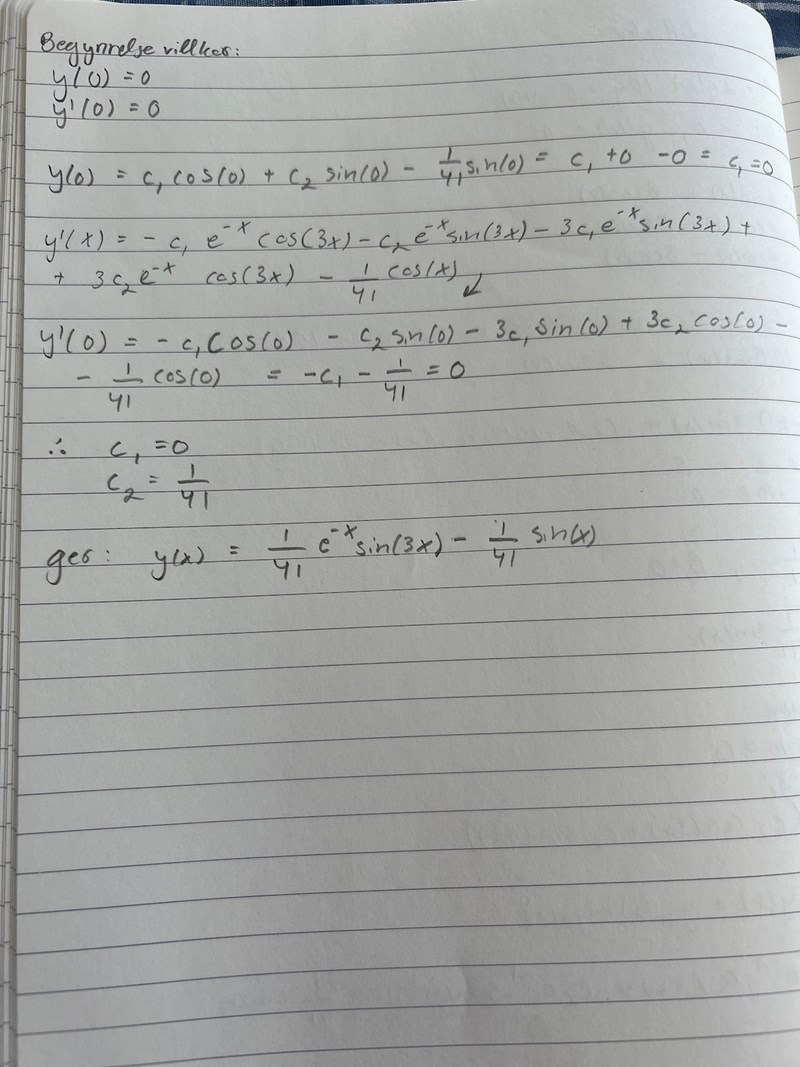 Begynnelse villkor:
y(0) = 0
y'(0) = 0
y(0) = c₁ cos(0) + c₂ sin(0) - 1/41 sin(0) = c₁ + 0 - 0 = c₁ = 0
y'(x) = - c₁ e^-x cos(3x) - c₂ e^-x sin(3x) - 3c₁ e^-x sin(3x) +
+ 3c₂ e^-x cos(3x) - 1/41 cos(x) ↙
y'(0) = - c₁ cos(0) - c₂ sin(0) - 3c₁ sin(0) + 3c₂ cos(0) -
- 1/41 cos(0) = -c₁ - 1/41 = 0
∴ c₁ = 0
c₂ = 1/41
ger: y(x) = 1/41 e^-x sin(3x) - 1/41 sin(x)